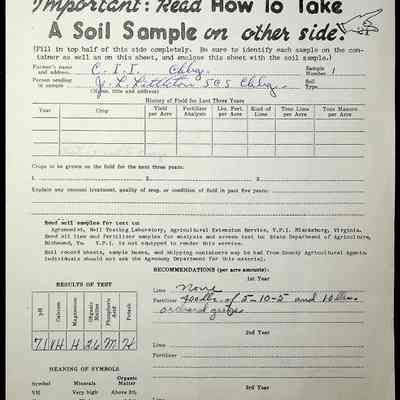 Important: Read How To Take
A Soil Sample on other side.
(Fill in top half of this side completely. Be sure to identify each sample on the con-
tainer as well as on this sheet, and enclose this sheet with the soil sample.)
Farmer's name and address. C. I. I. Chbg. Sample Number 1
Person sending in sample J. L. Littleton SCS Chbg. Soil Type
(Name, title and address)
History of Field for Last Three Years
Year Crop Yield per Acre Fertilizer Analysis Lbs. Fert. per Acre Kind of Lime Tons Lime per Acre Tons Manure per Acre
Crops to be grown on the field for the next three years:
1. 2. 3.
Explain any unusual treatment, quality of crop, or condition of field in past five years:
Send soil samples for test to:
Agronomist, Soil Testing Laboratory, Agricultural Extension Service, V.P.I. Blacksburg, Virginia.
Send all lime and fertilizer samples for analysis and screen test to: State Department of Agriculture,
Richmond, Va. V.P.I. is not equipped to render this service.
Soil record sheets, sample boxes, and shipping containers may be had from County Agricultural Agents.
Individuals should not ask the Agronomy Department for this material.
RECOMMENDATIONS (per acre amounts):
1st Year
RESULTS OF TEST
Lime None
Fertilizer 400 lbs. of 5-10-5 and 10 lbs.
orchard grass
pH Calcium Magnesium Organic Matter Phosphoric Acid Potash
7.1 VH H 3.6 M H
2nd Year
Lime
Fertilizer
MEANING OF SYMBOLS
Symbol Minerals Organic Matter
3rd Year
VH Very high Above 3%